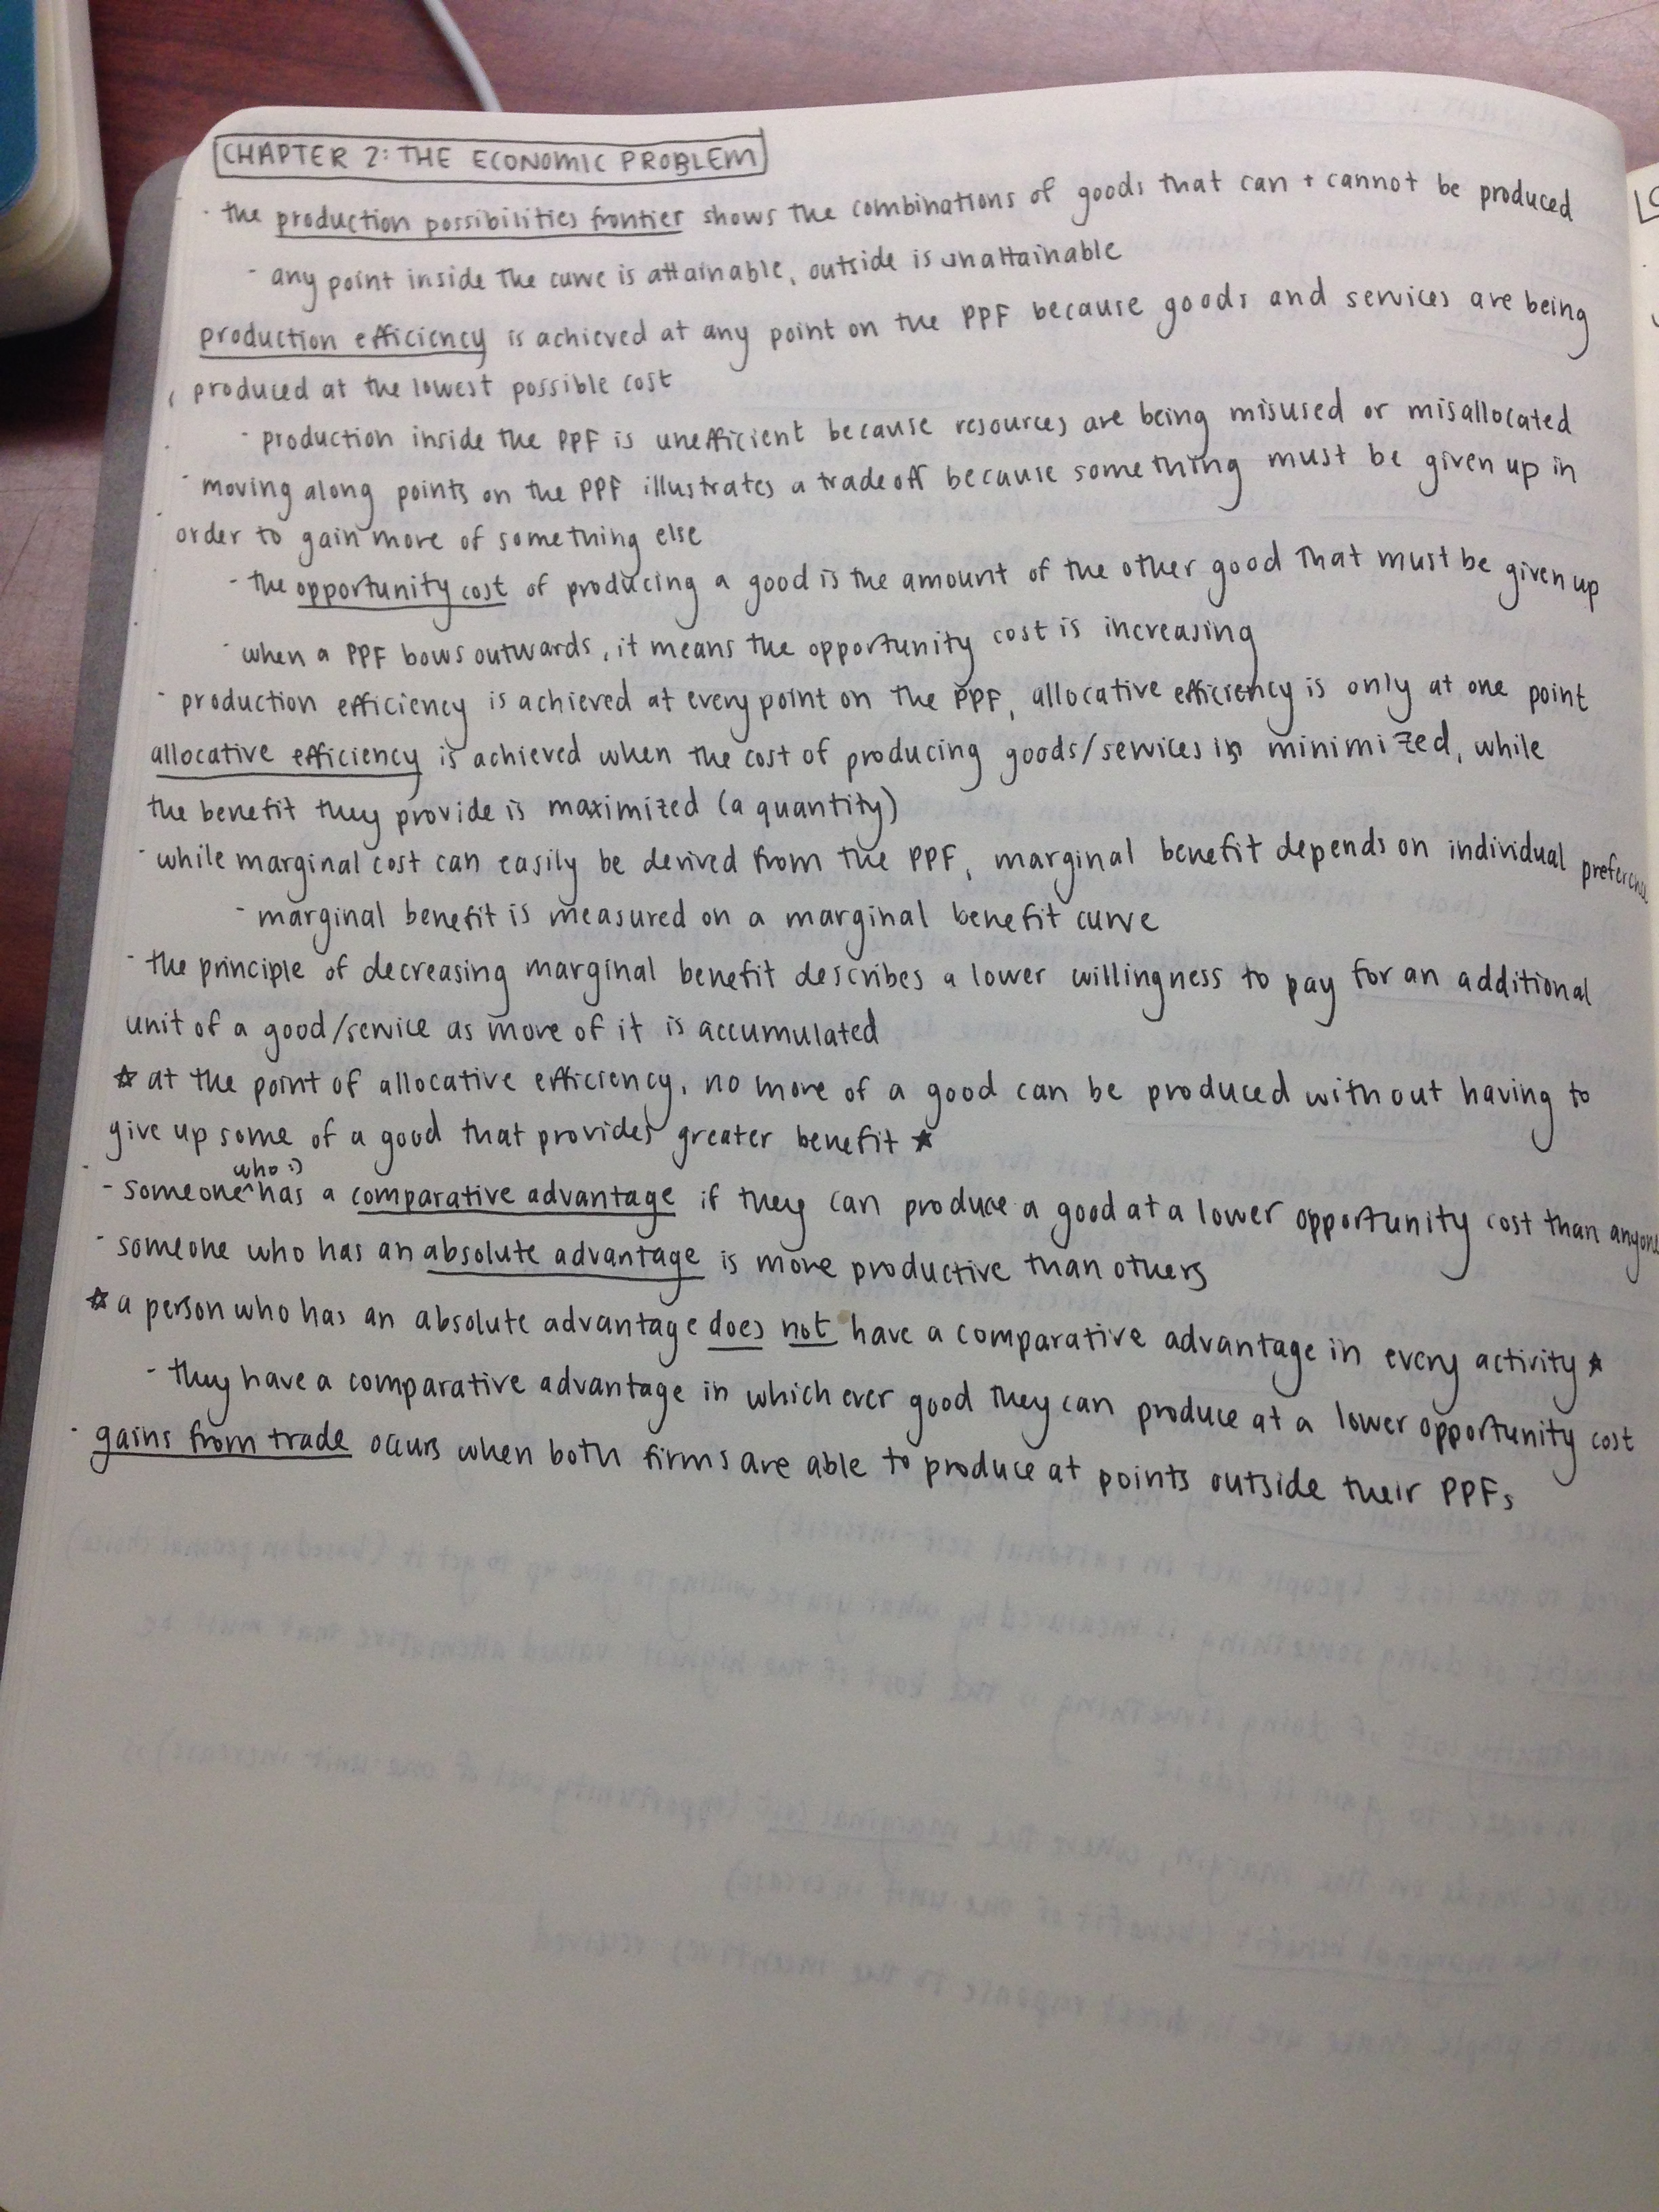 CHAPTER 2: THE ECONOMIC PROBLEM
- the production possibilities frontier shows the combinations of goods that can + cannot be produced
- any point inside the curve is attainable, outside is unattainable
production efficiency is achieved at any point on the PPF because goods and services are being
produced at the lowest possible cost
- production inside the PPF is unefficient because resources are being misused or misallocated
- moving along points on the PPF illustrates a tradeoff because something must be given up in
order to gain more of something else
- the opportunity cost of producing a good is the amount of the other good that must be given up
- when a PPF bows outwards, it means the opportunity cost is increasing
- production efficiency is achieved at every point on the PPF, allocative efficiency is only at one point
allocative efficiency is achieved when the cost of producing goods/services is minimized, while
the benefit they provide is maximized (a quantity)
- while marginal cost can easily be derived from the PPF, marginal benefit depends on individual preference
- marginal benefit is measured on a marginal benefit curve
- the principle of decreasing marginal benefit describes a lower willingness to pay for an additional
unit of a good/service as more of it is accumulated
☆ at the point of allocative efficiency, no more of a good can be produced without having to
give up some of a good that provides greater benefit ☆
who :)
- someone ^ has a comparative advantage if they can produce a good at a lower opportunity cost than anyone
- someone who has an absolute advantage is more productive than others
☆ a person who has an absolute advantage does not have a comparative advantage in every activity ☆
- they have a comparative advantage in which ever good they can produce at a lower opportunity cost
- gains from trade occurs when both firms are able to produce at points outside their PPFs